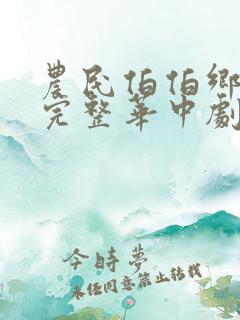 農民伯伯鄉
完整華中劇
今時夢
未经同意禁止转载